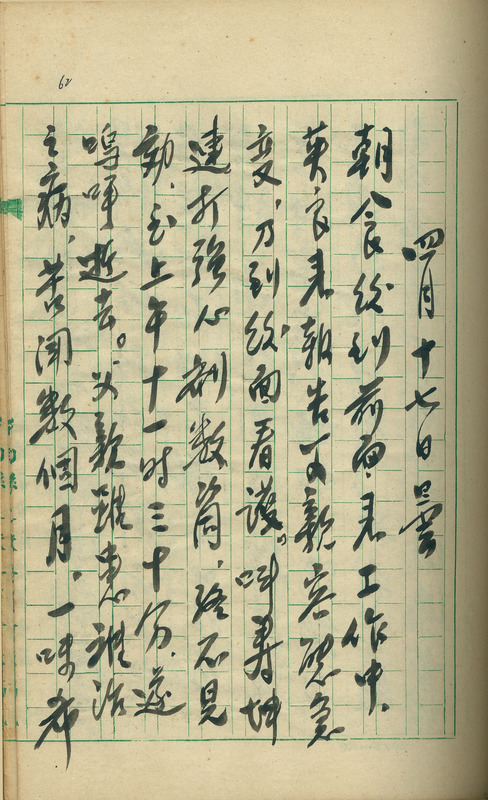 62
四月十七日曇
朝食後到前面, 君工作中,
英良君報告父親容態急
變, 乃到後面看護。叫壽坤
連打強心劑數筒, 終不見
効, 至上午十一時三十分, 遂
嗚呼逝去。父親雖患難治
之病, 苦鬧數個月, 一味希